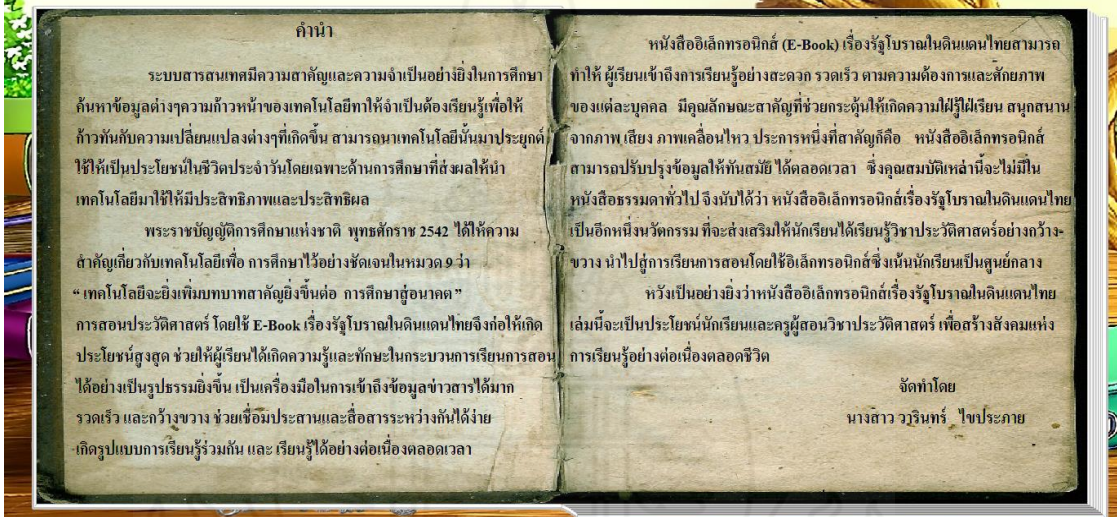 คำนำ
ระบบสารสนเทศมีความสาคัญและความจำเป็นอย่างยิ่งในการศึกษา
ค้นหาข้อมูลต่างๆความก้าวหน้าของเทคโนโลยีทาให้จำเป็นต้องเรียนรู้เพื่อให้
ก้าวทันกับความเปลี่ยนแปลงต่างๆที่เกิดขึ้น สามารถนาเทคโนโลยีนั้นมาประยุกต์
ใช้ให้เป็นประโยชน์ในชีวิตประจำวันโดยเฉพาะด้านการศึกษาที่ส่งผลให้นำ
เทคโนโลยีมาใช้ให้มีประสิทธิภาพและประสิทธิผล
พระราชบัญญัติการศึกษาแห่งชาติ พุทธศักราช 2542 ได้ให้ความ
สำคัญเกี่ยวกับเทคโนโลยีเพื่อ การศึกษาไว้อย่างชัดเจนในหมวด 9 ว่า
“ เทคโนโลยีจะยิ่งเพิ่มบทบาทสาคัญยิ่งขึ้นต่อ การศึกษาสู่อนาคต ”
การสอนประวัติศาสตร์ โดยใช้ E-Book เรื่องรัฐโบราณในดินแดนไทยจึงก่อให้เกิด
ประโยชน์สูงสุด ช่วยให้ผู้เรียนได้เกิดความรู้และทักษะในกระบวนการเรียนการสอน
ได้อย่างเป็นรูปธรรมยิ่งขึ้น เป็นเครื่องมือในการเข้าถึงข้อมูลข่าวสารได้มาก
รวดเร็ว และกว้างขวาง ช่วยเชื่อมประสานและสื่อสารระหว่างกันได้ง่าย
เกิดรูปแบบการเรียนรู้ร่วมกัน และ เรียนรู้ได้อย่างต่อเนื่องตลอดเวลา
หนังสืออิเล็กทรอนิกส์ (E-Book) เรื่องรัฐโบราณในดินแดนไทยสามารถ
ทำให้ ผู้เรียนเข้าถึงการเรียนรู้อย่างสะดวก รวดเร็ว ตามความต้องการและศักยภาพ
ของแต่ละบุคคล มีคุณลักษณะสาคัญที่ช่วยกระตุ้นให้เกิดความใฝ่รู้ใฝ่เรียน สนุกสนาน
จากภาพ เสียง ภาพเคลื่อนไหว ประการหนึ่งที่สาคัญก็คือ หนังสืออิเล็กทรอนิกส์
สามารถปรับปรุงข้อมูลให้ทันสมัย ได้ตลอดเวลา ซึ่งคุณสมบัติเหล่านี้จะไม่มีใน
หนังสือธรรมดาทั่วไป จึงนับได้ว่า หนังสืออิเล็กทรอนิกส์เรื่องรัฐโบราณในดินแดนไทย
เป็นอีกหนึ่งนวัตกรรม ที่จะส่งเสริมให้นักเรียนได้เรียนรู้วิชาประวัติศาสตร์อย่างกว้าง-
ขวาง นำไปสู่การเรียนการสอนโดยใช้อิเล็กทรอนิกส์ซึ่งเน้นนักเรียนเป็นศูนย์กลาง
หวังเป็นอย่างยิ่งว่าหนังสืออิเล็กทรอนิกส์เรื่องรัฐโบราณในดินแดนไทย
เล่มนี้จะเป็นประโยชน์นักเรียนและครูผู้สอนวิชาประวัติศาสตร์ เพื่อสร้างสังคมแห่ง
การเรียนรู้อย่างต่อเนื่องตลอดชีวิต
จัดทำโดย
นางสาว วารินทร์ ไขประภาย